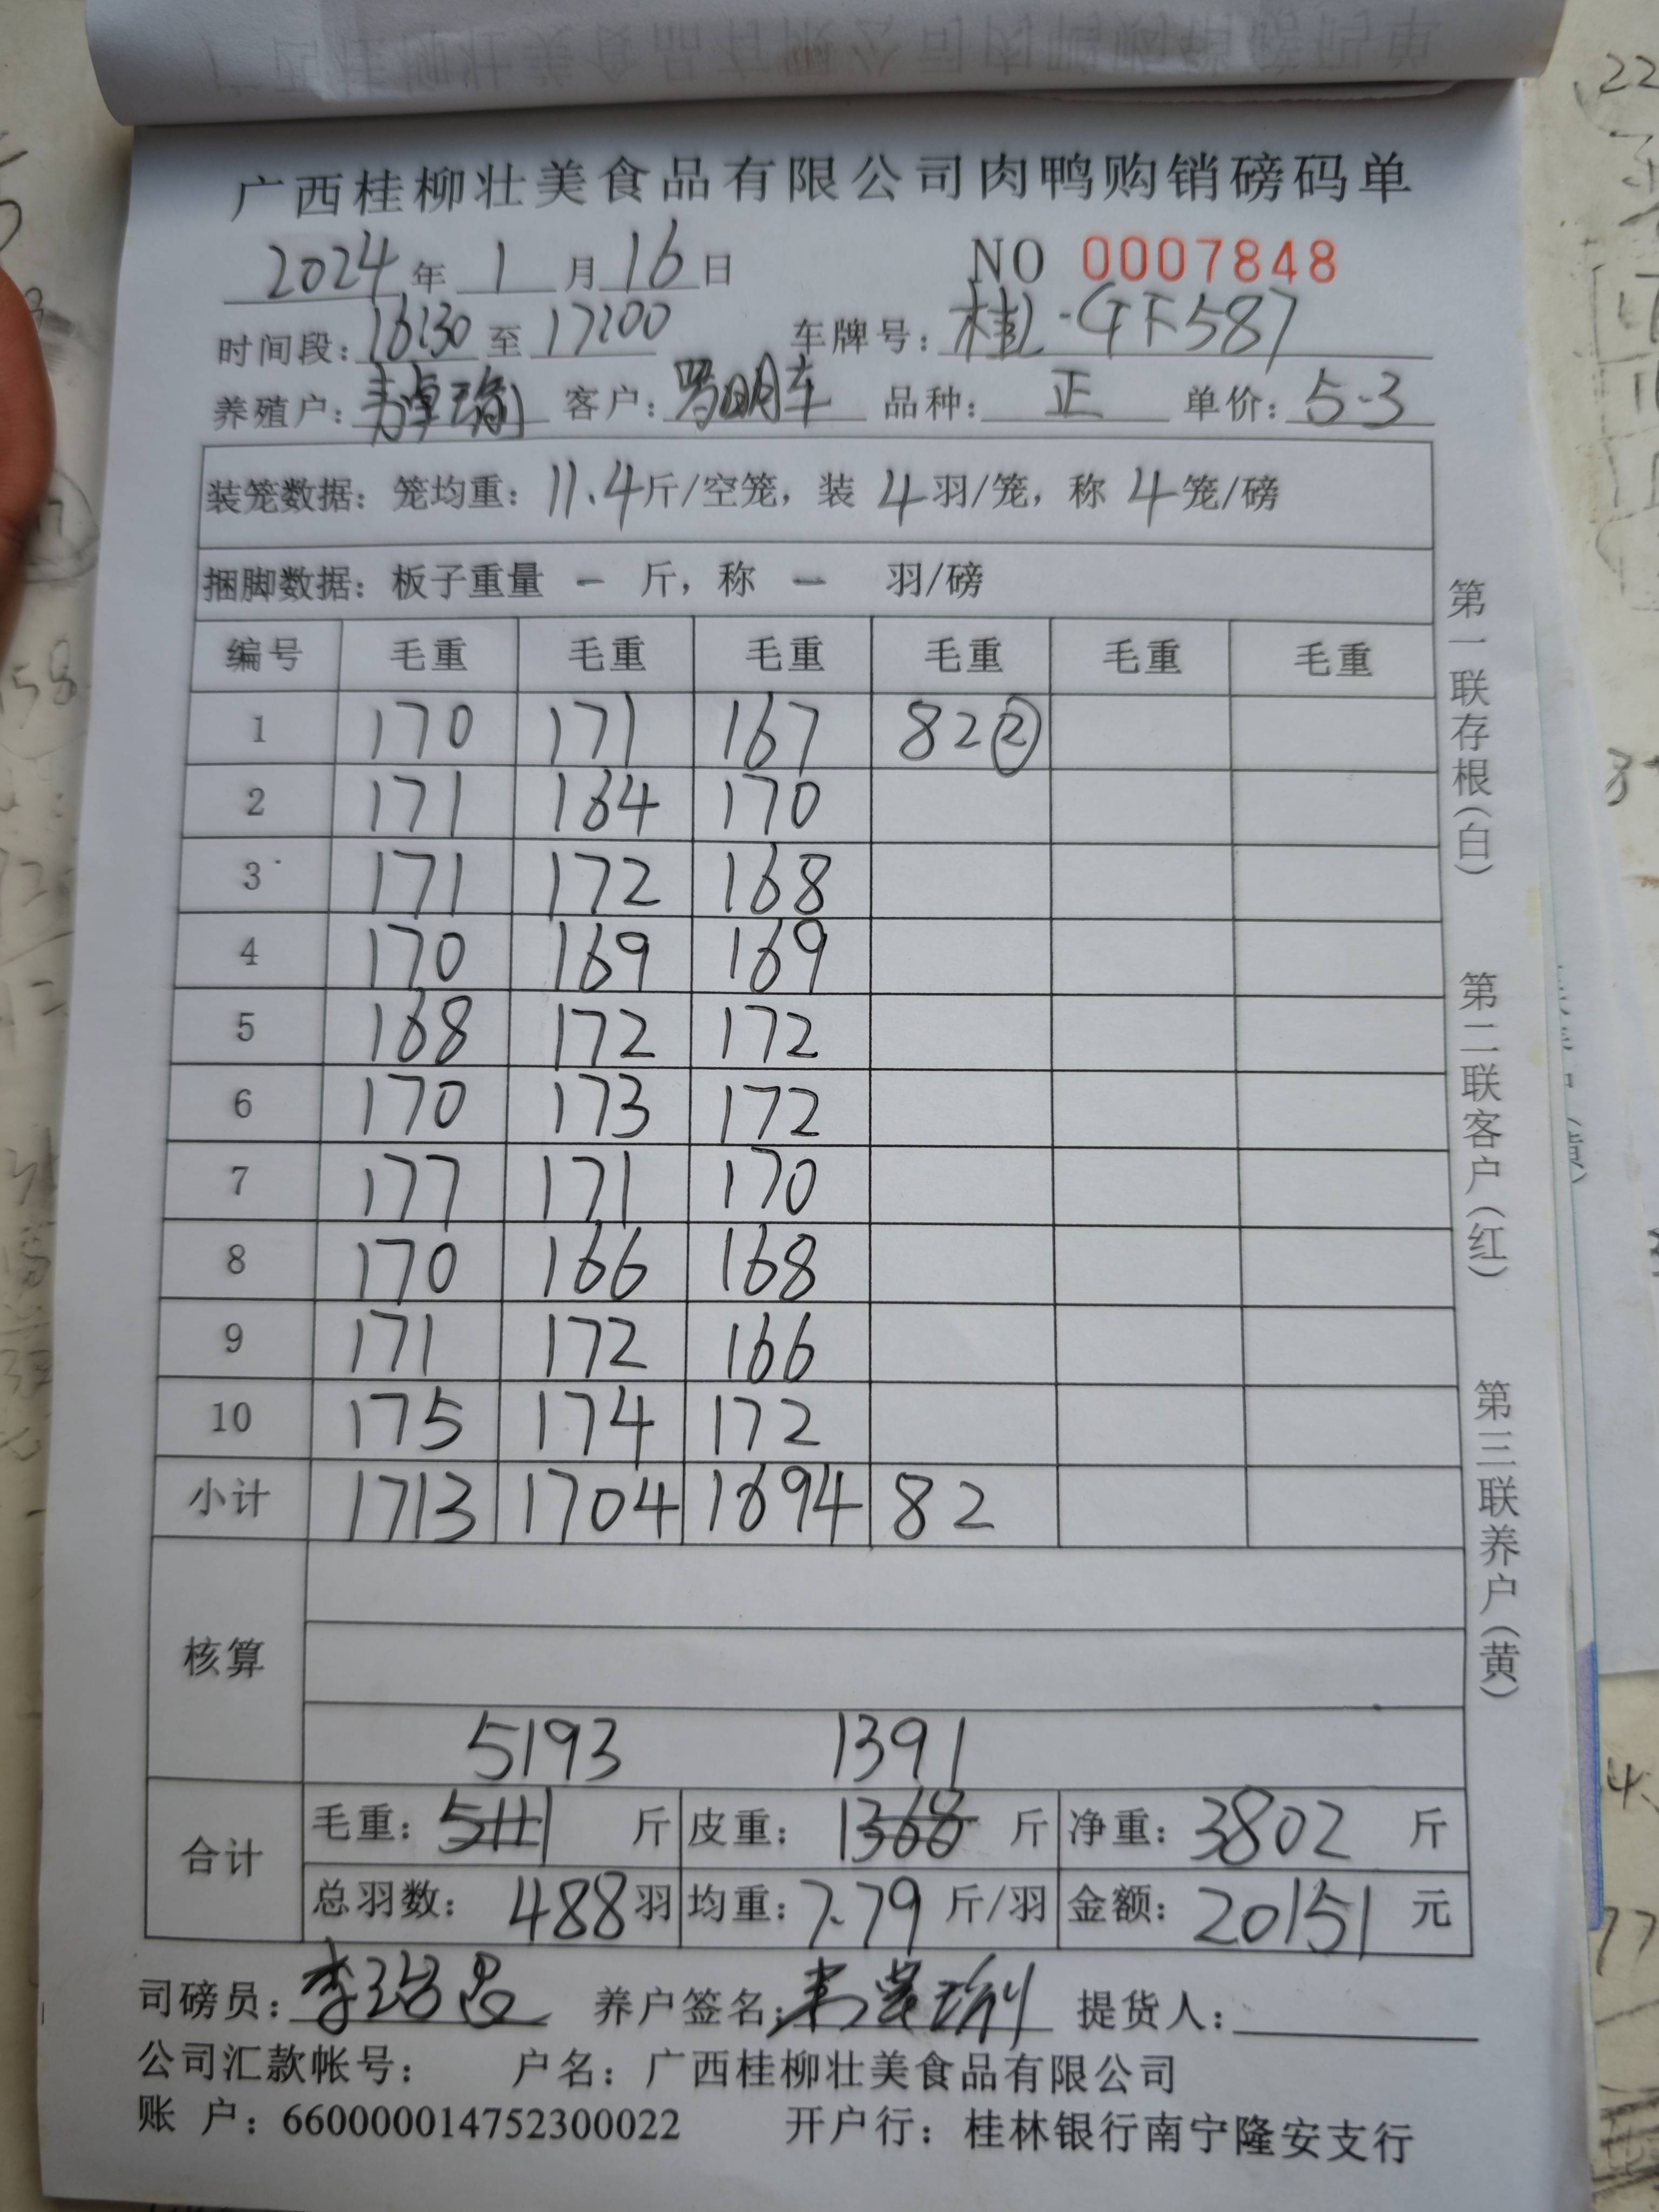 广西桂柳壮美食品有限公司肉鸭购销磅码单
2024年 1 月 16 日 NO 0007848
时间段：16:30 至 17:00 车牌号：桂·GF587
养殖户： 客户：罗明车 品种：正 单价：5.3
装笼数据：笼均重：11.4斤/空笼，装 4 羽/笼，称 4 笼/磅
捆脚数据：板子重量 — 斤，称 — 羽/磅
编号 毛重 毛重 毛重 毛重 毛重 毛重
1 170 171 167 82②
2 171 164 170
3 171 172 168
4 170 169 169
5 168 172 172
6 170 173 172
7 177 171 170
8 170 166 168
9 171 172 166
10 175 174 172
小计 1713 1704 1694 82
核算
5193 1391
合计
毛重：5111 斤 皮重：1368 斤 净重：3802 斤
总羽数：488羽 均重：7.79 斤/羽 金额：20151 元
司磅员： 养户签名： 提货人：
公司汇款帐号： 户名：广西桂柳壮美食品有限公司
账 户：660000014752300022 开户行：桂林银行南宁隆安支行
第一联存根（白）
第二联客户（红）
第三联养户（黄）